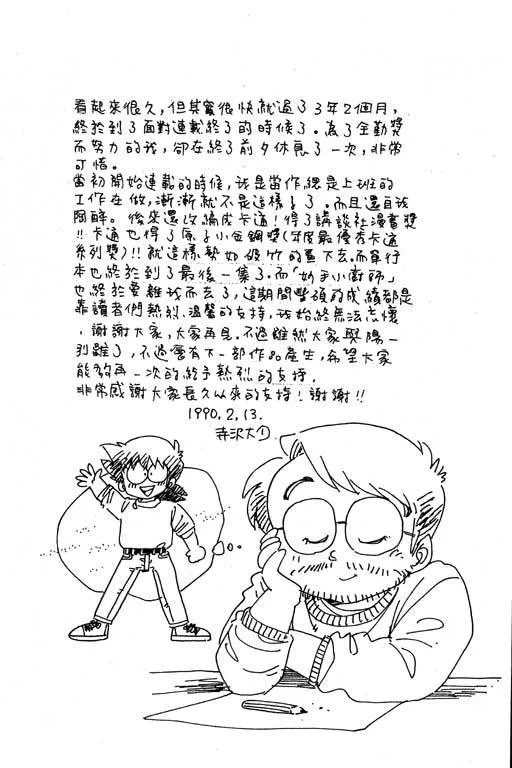 看起來很久，但其實很快就過了3年2個月，
終於到了面對連載終了的時候了。為了全勤獎
而努力的我，卻在終了前夕休息了一次，非常
可惜。
當初開始連載的時候，我是當作總是上班的
工作在做，漸漸就不是這樣了了。而且還自我
陶醉。後來還改編成卡通！得了講談社漫畫獎
!!卡通也得了原子小金鋼獎(年度最優秀卡通
系列獎)!!就這樣勢如破竹的畫下去。而單行
本也終於到了最後一集了。而「妙手小廚師」
也終於要離我而去了，這期間豐碩的成績都是
靠讀者們熱烈、溫馨的支持，我始終無法忘懷
，謝謝大家，大家再見。不過雖然大家與陽一
別離了，不過會有下一部作品產生，希望大家
能夠再一次的給予熱烈的支持。
非常感謝大家長久以來的支持！謝謝!!
1990.2.13.
寺沢大介